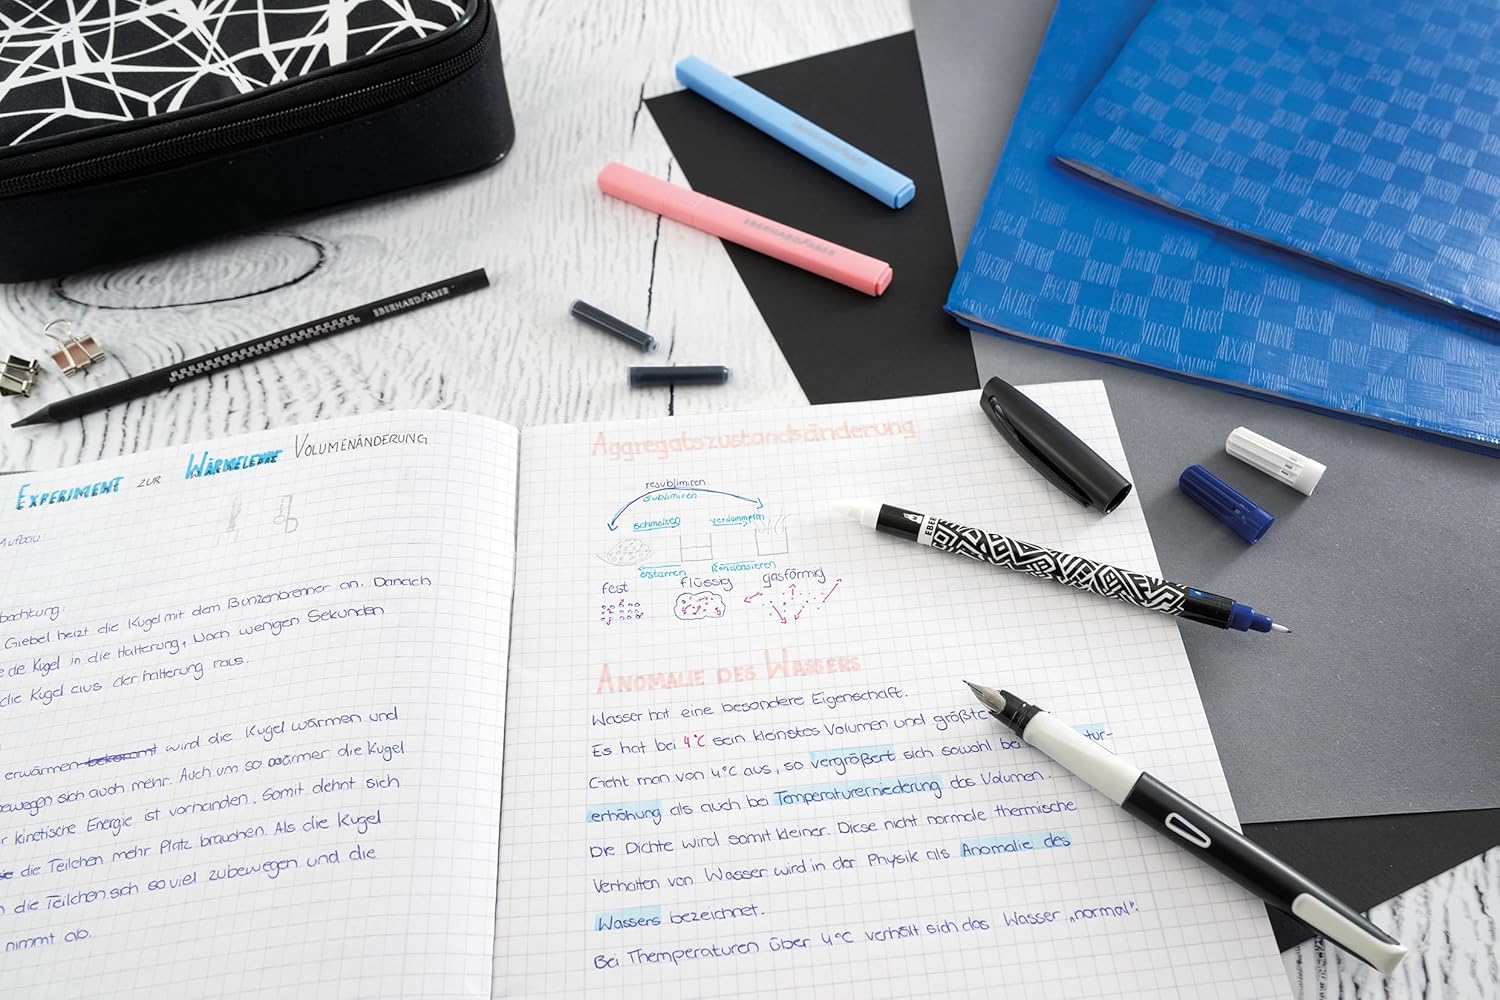 EBERHARD FABER
EBERHARD FABER
EBER
EXPERIMENT ZUR WÄRMELEHRE VOLUMENÄNDERUNG
Aufbau:
bachtung:
Giebel heizt die Kugel mit dem Bunzenbrenner an. Danach
die Kugel in die Halterung, Nach wenigen Sekunden
die Kugel aus der halterung raus.
erwärmen bekommt wird die Kugel wärmen und
bewegen sich auch mehr. Auch um so wärmer die Kugel
r kinetische Energie ist vorhanden. Somit dehnt sich
die Teilchen mehr Platz brauchen. Als die Kugel
die Teilchen sich so viel zubewegen und die
nimmt ab.
Aggregatszustandsänderung
resublimiren
sublimiren
schmelzen verdampfen
erstarren Kondensieren
fest flüssig gasförmig
ANOMALIE DES WASSERS
Wasser hat eine besondere Eigenschaft.
Es hat bei 4°C sein kleinstes Volumen und größte
Geht man von 4°C aus, so vergrößert sich sowohl bei tur-
erhöhung als auch bei Temperaturerniederung das Volumen.
Die Dichte wird somit kleiner. Diese nicht normale thermische
Verhalten von Wasser wird in der Physik als Anomalie des
Wassers bezeichnet.
Bei Themperaturen über 4°C verhält sich das Wasser „normal".